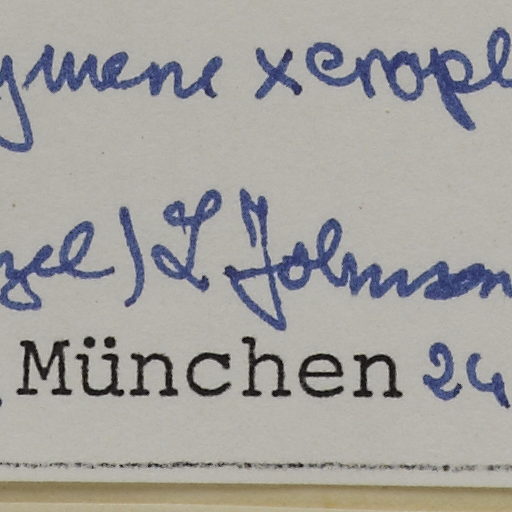 ymene xeroph
zel) L Johnson
München 24